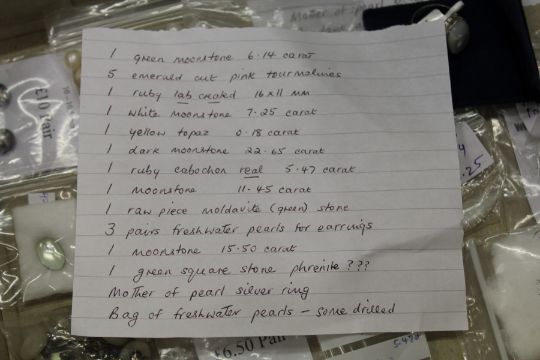 Mother of pearl
£10 Pair
1 green moonstone 6.14 carat
5 emerald cut pink tourmalines
1 ruby lab created 16x11 mm
1 white moonstone 7.25 carat
1 yellow topaz 0.18 carat
1 dark moonstone 22.65 carat
1 ruby cabochon real 5.47 carat
1 moonstone 11.45 carat
1 raw piece moldavite (green) stone
3 pairs freshwater pearls for earrings
1 moonstone 15.50 carat
1 green square stone phrenite ???
Mother of pearl silver ring
Bag of freshwater pearls - some drilled
£6.50 Pair